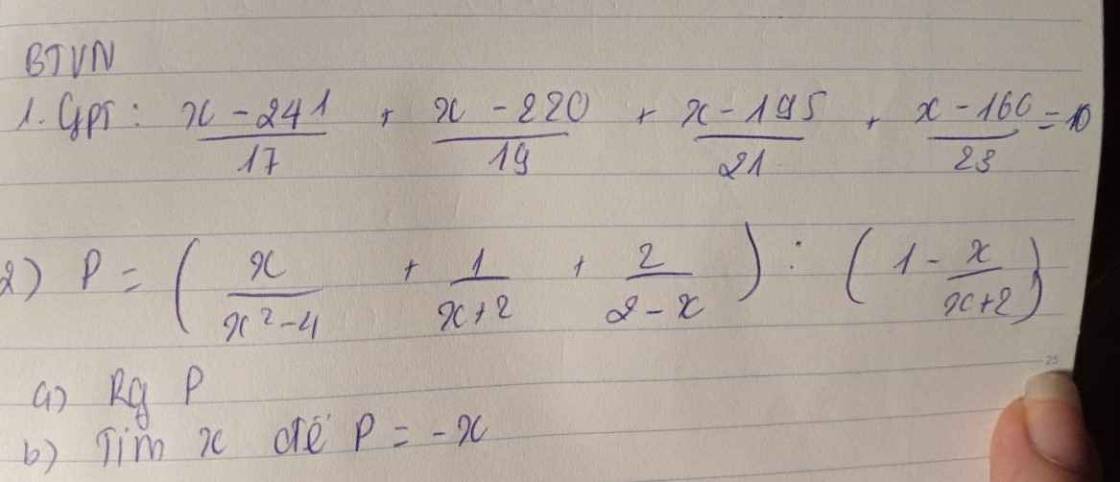 BTVN
1. Gpt: \frac{x-241}{17} + \frac{x-220}{19} + \frac{x-195}{21} + \frac{x-166}{23} = 10
2) P = ( \frac{x}{x^2-4} + \frac{1}{x+2} + \frac{2}{2-x} ) : ( 1 - \frac{x}{x+2} )
25
a) Rg P
b) Tìm x để P = -x